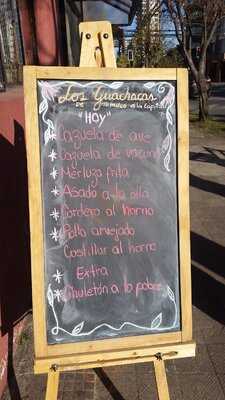 Los Guachacas
DE Temuco a la Capital
"HOY"
* Cazuela de ave
* Cazuela de vacuno
* Merluza frita
* Asado a la olla
* Cordero al horno
* Pollo arvejado
Costillar al horno
* Extra
* Chuletón a lo pobre